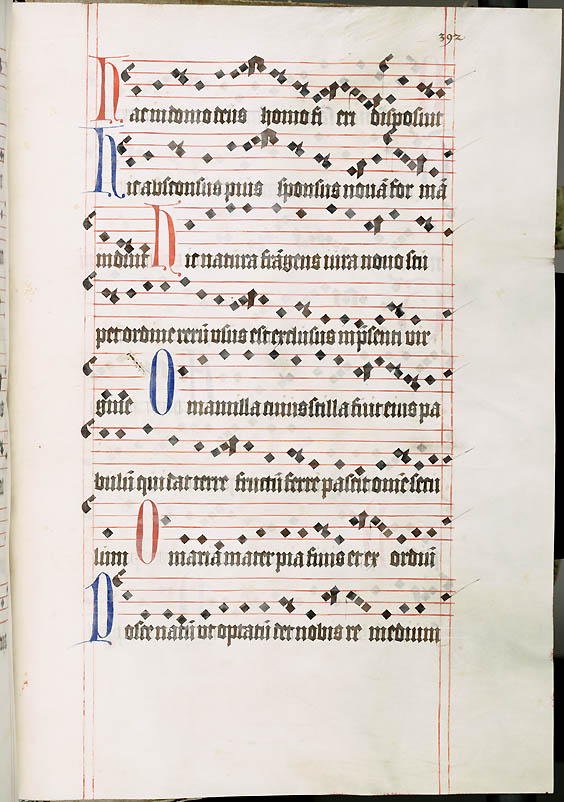 392
Hac in domo deus homo fi eri disposuit
Hic absconsus pius sponsus novā for mā
induit Hic natura frāgens iura novo seu
per ordine rerū usus est exclusus in pſenti vir
gine O mamilla cuius stilla fuit eius pa
bulū qui dat terre fructū ferre pascit om̄e secu
lum O maria mater pia finis et ex ordiū
Posce natū ut optatū det nobis re medium